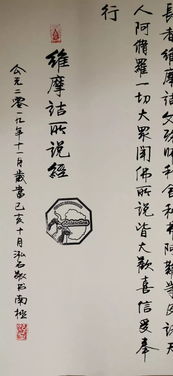 長者維摩詰文殊師利舍利弗阿難等及諸天
人阿脩羅一切大眾聞佛所說皆大歡喜信受奉
行
維摩詰所說經
公元二零一九年十一月歲當己亥十月南極